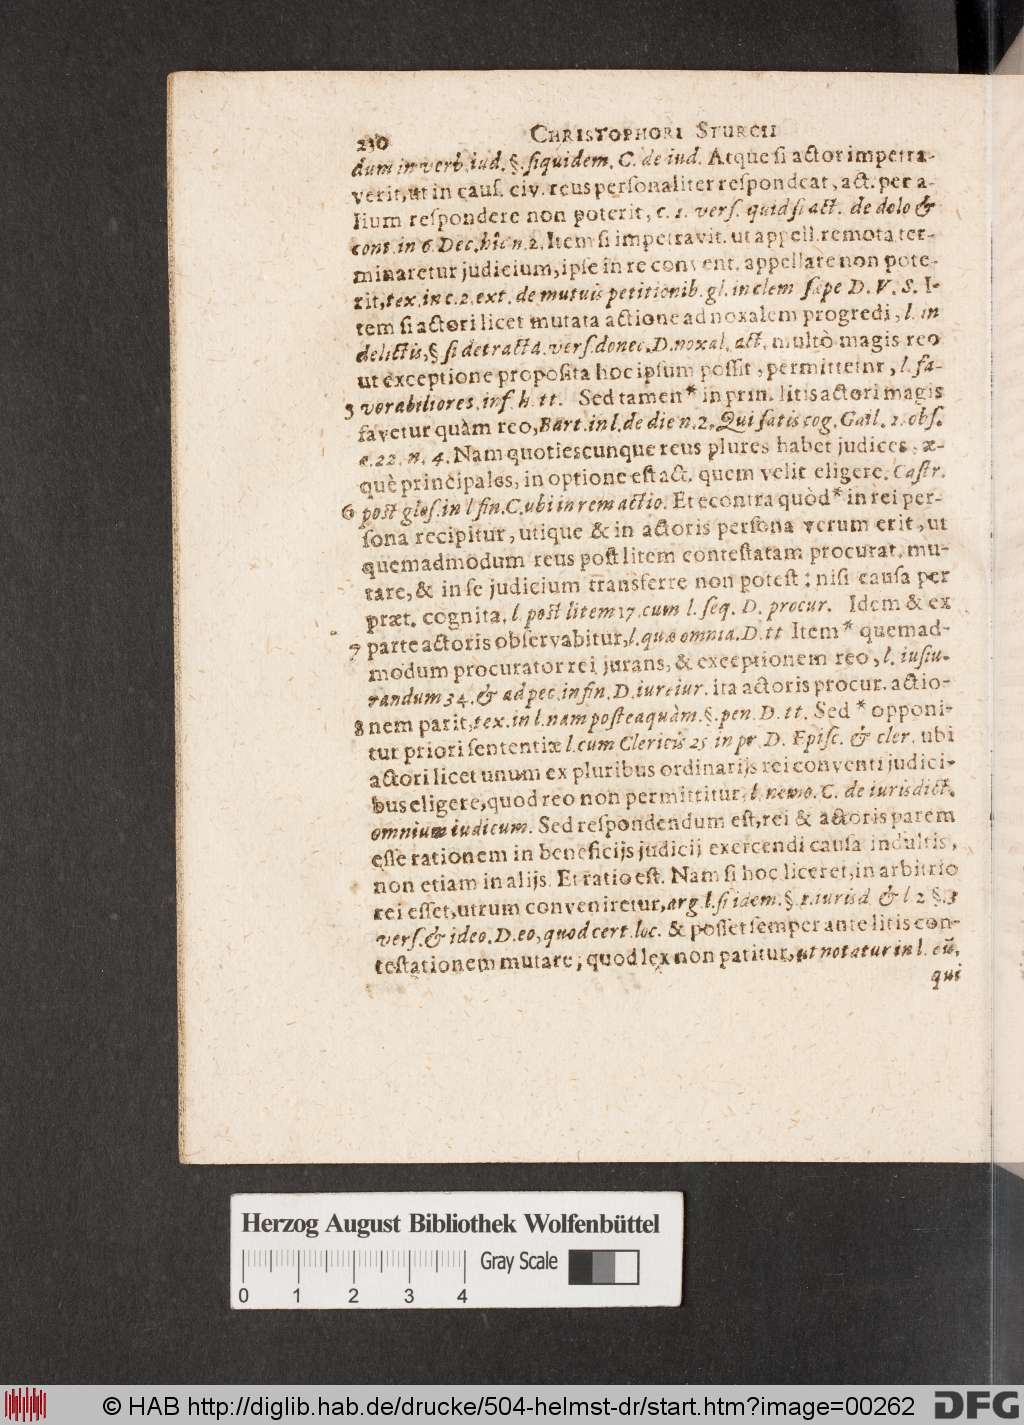 230 CHRISTOPHORI STURCII
dum in verb. iud. §. siquidem. C. de iud. Atque si actor impetra-
verit, ut in caus. civ. reus personaliter respondeat, act. per a-
lium respondere non poterit, c. 1. vers. quid si act. de dolo &
cont. in 6. Dec. hîc n. 2. Item si impetravit. ut appell. remota ter-
minaretur judicium, ipse in reconvent. appellare non pote-
rit, tex. in c. 2. ext. de mutuis petitionib. gl. in clem sæpe D. V. S. I-
tem si actori licet mutata actione ad noxalem progredi, l. in
delictis, § si detracta. vers. donec. D. noxal. act. multò magis reo
ut exceptione proposita hoc ipsum possit, permittetur, l. fa-
5 vorabiliores. inf. h. tt. Sed tamen* in prin. litis actori magis
favetur quàm reo, Bart. in l. de die n. 2. Qui satis cog. Gail. 1. obs.
e. 22. n. 4. Nam quotiescunque reus plures habet judices, æ-
què principales, in optione est act. quem velit eligere. Castr.
6 post glos. in l fin. C. ubi in rem actio. Et econtra quòd* in rei per-
sona recipitur, utique & in actoris persona verum erit, ut
quemadmodum reus post litem contestatam procurat. mu-
tare, & in se judicium transferre non potest: nisi causa per
præt. cognita. l. post litem 17. cum l. seq. D. procur. Idem & ex
7 parte actoris observabitur, l. quæ omnia. D. tt Item* quemad-
modum procurator rei jurans, & exceptionem reo, l. iusiu-
randum 34. & ad pec. in fin. D. iureiur. ita actoris procur. actio-
8 nem parit, tex. in l. nam posteaquàm. §. pen. D. tt. Sed* opponi-
tur priori sententiæ l. cum Clericis 25 in pr. D. Episc. & cler. ubi
actori licet unum ex pluribus ordinarijs rei conventi judici-
bus eligere, quod reo non permittitur, l. nemo. C. de iurisdict.
omnium iudicum. Sed respondendum est, rei & actoris parem
esse rationem in beneficijs judicij exercendi causa indultis,
non etiam in alijs. Et ratio est. Nam si hoc liceret, in arbitrio
rei esset, utrum conveniretur, arg. l. si idem. §. 1. iurisd. & l 2 §. 3
vers. & ideo. D. eo, quod cert. loc. & posset semper ante litis con-
testationem mutare; quod lex non patitur, ut notatur in l. eũ,
qui
Herzog August Bibliothek Wolfenbüttel
Gray Scale
0 1 2 3 4
© HAB http://diglib.hab.de/drucke/504-helmst-dr/start.htm?image=00262
DFG